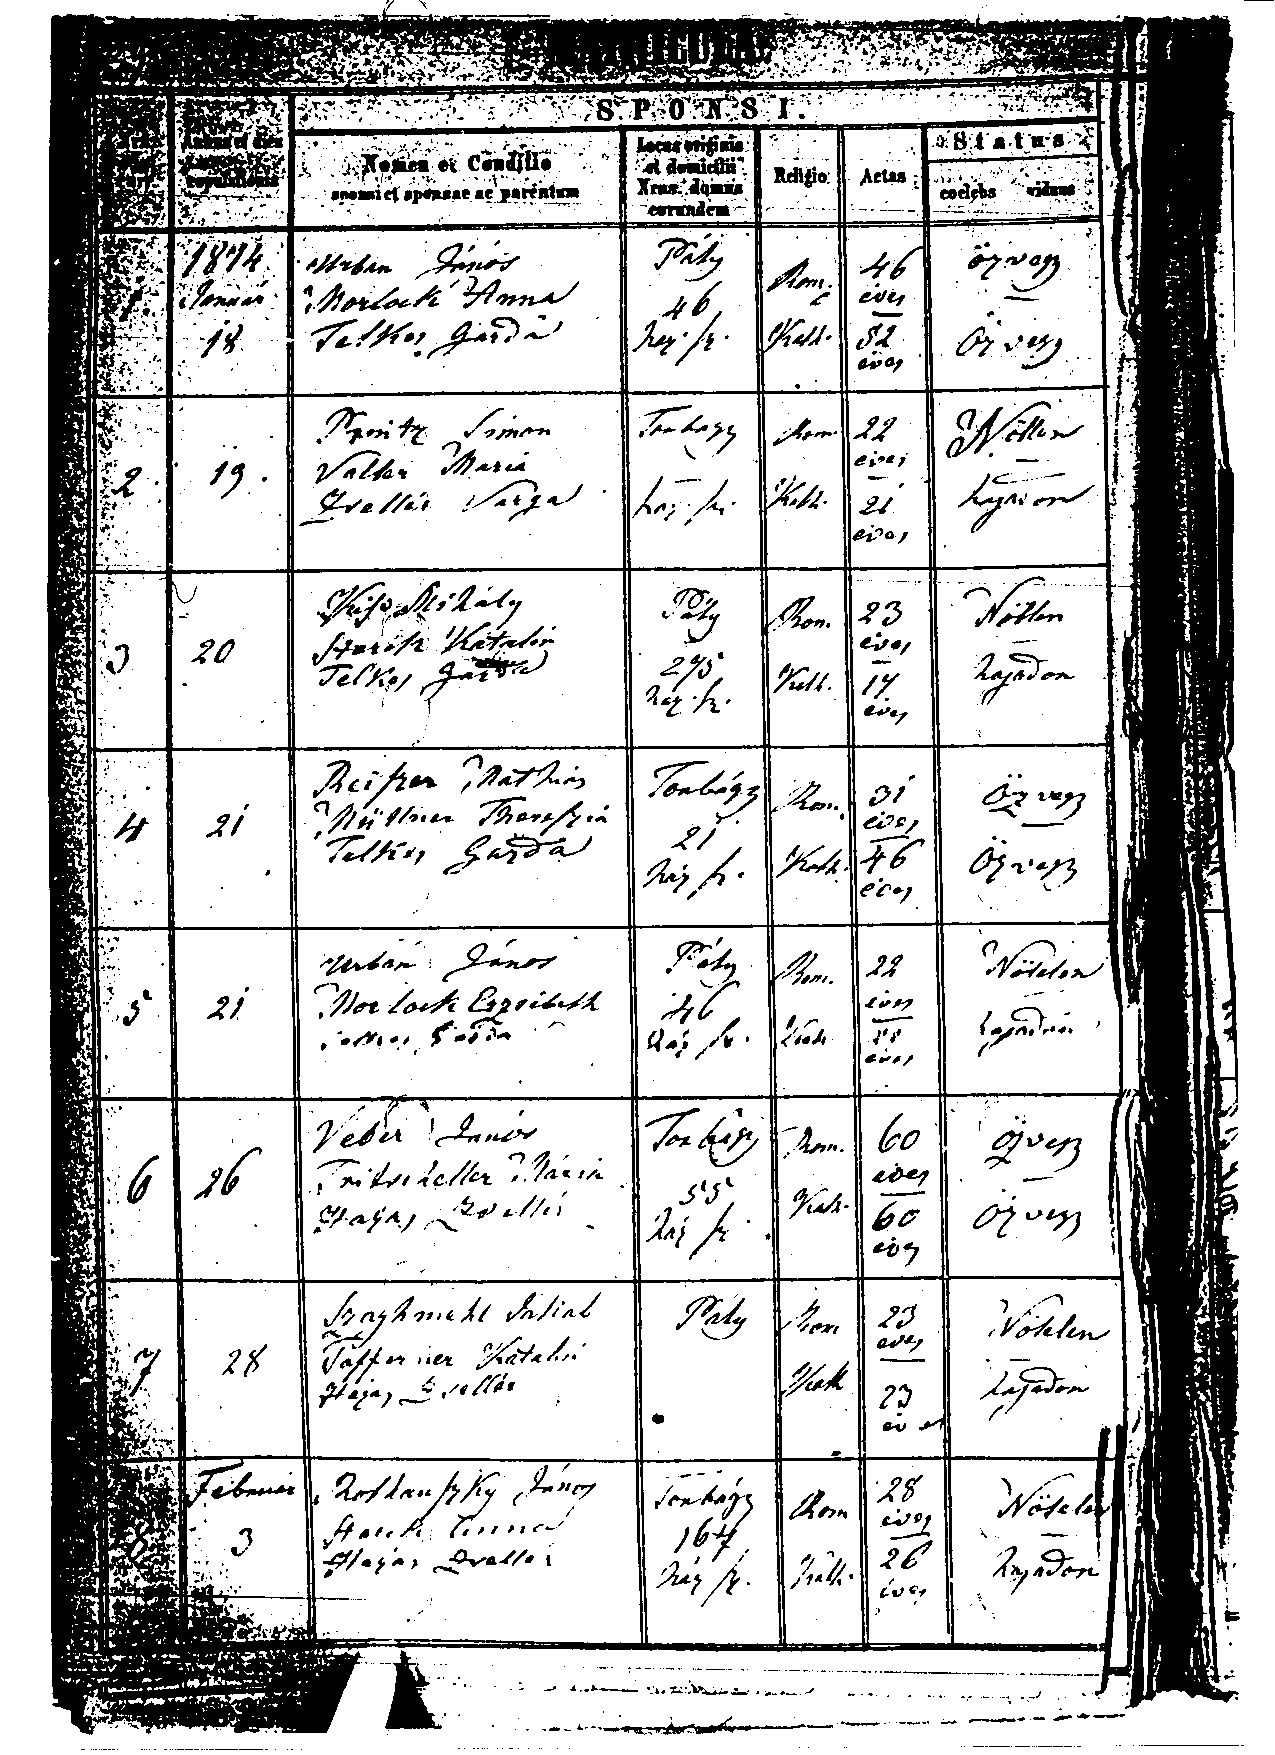 SPONSI.
Nomen et Conditio
sponsi et sponsae ac parentum
Locus originis
et domicilii
Nrus. domus
eorundem
Religio
Aetas
Status
coelebs viduus
1874
Januar
18
Urban János
Morlock Anna
Telkes gazda
Páty
46
ház sz.
Rom.
Kath.
46
éves
52
éves
özvegy
özvegy
2
19.
Simon
Valter Maria
Zsellér Varga
Tonbágy
ház. sz.
Rom
Kath.
22
éves
21
éves
Nőtlen
hajadon
3
20
Mihály
Katalin
Telkes gazda
Páty
275
ház. sz.
Rom.
Kath.
23
éves
17
éves
Nőtlen
hajadon
4
21
Mathias
Thereszia
Telkes Gazda
Tonbágy
21
ház sz.
Rom.
Kath.
31
éves
46
éves
Özvegy
Özvegy
5
21
Urbán János
Morlock Erzsibeth
Telkes Gazda
Páty
46
ház sz.
Rom.
Kath
22
éves
éves
Nőtelen
hajadon
6
26
Veber János
Fritscheller Mária
Hazas Zsellér
Tonbágy
55
ház sz.
Rom.
Kath.
60
éves
60
éves
Özvegy
Özvegy
7
28
Tafferner Katalin
Hazas Zsellér
Páty
Rom
Kath
23
éves
23
éves
Nőtelen
hajadon
Februar
8
3
János
Anna
Hazas Zsellér
Tonbágy
167
ház sz.
Rom
Kath.
28
éves
26
éves
Nőtelen
hajadon